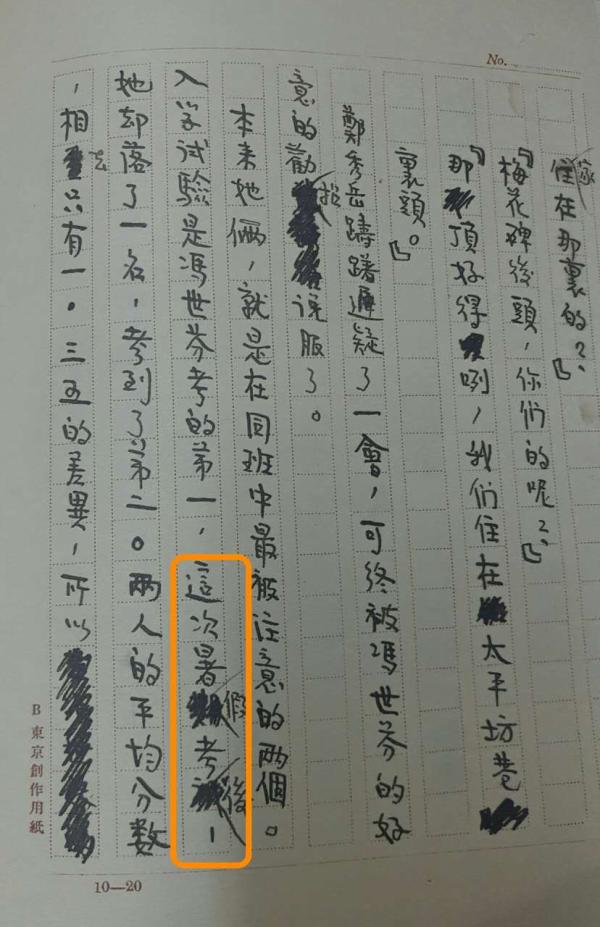 No.
家住在那裏的？』
『梅花碑後頭，你們的呢？』
『那頂好得咧，我們住在大平坊巷
裏頭。』
鄭秀岳躊躇遲疑了一會，可終被馮世芬的好
意的勸招說服了。
本來她倆，就是在同班中最被注意的兩個。
入学試驗是馮世芬考的第一，這次暑假考後，
她却落了一名，考到了第二。兩人的平均分數
，相去只有一。三五的差異，所以
B 東京創作用紙
10—20